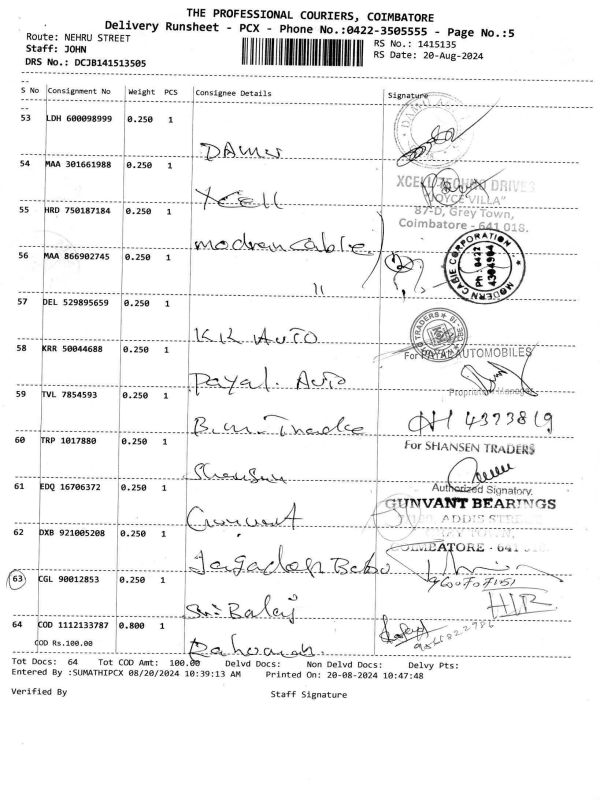 THE PROFESSIONAL COURIERS, COIMBATORE
Delivery Runsheet - PCX - Phone No.:0422-3505555 - Page No.:5
Route: NEHRU STREET
RS No.: 1415135
Staff: JOHN
RS Date: 20-Aug-2024
DRS No.: DCJB141513505
S No Consignment No Weight PCS Consignee Details Signature
53 LDH 600098999 0.250 1
DAMU
54 MAA 301661988 0.250 1
XCELL TECHNO DRIVES
Xcell
"JOYCE VILLA"
55 HRD 750187184 0.250 1
87-D, Grey Town,
Coimbatore - 641 018.
modren cable
MODERN CABLE CORPORATION
Ph : 0422
4304904
56 MAA 866902745 0.250 1
11
57 DEL 529895659 0.250 1
TRADERS
KK Auto
58 KRR 50044688 0.250 1
For PAYAL AUTOMOBILES
Payal. Auto
59 TVL 7854593 0.250 1
B.M. Tradke
4373819
60 TRP 1017880 0.250 1
For SHANSEN TRADERS
Authorized Signatory.
61 EDQ 16706372 0.250 1
GUNVANT BEARINGS
Gunvant
62 DXB 921005208 0.250 1
COIMBATORE - 641 018
Jagadesh Babu
63 CGL 90012853 0.250 1
9600707151
Sri Balaj
64 COD 1112133787 0.800 1
COD Rs.100.00
Tot Docs: 64 Tot COD Amt: 100.00 Delvd Docs: Non Delvd Docs: Delvy Pts:
Entered By :SUMATHIPCX 08/20/2024 10:39:13 AM Printed On: 20-08-2024 10:47:48
Verified By Staff Signature